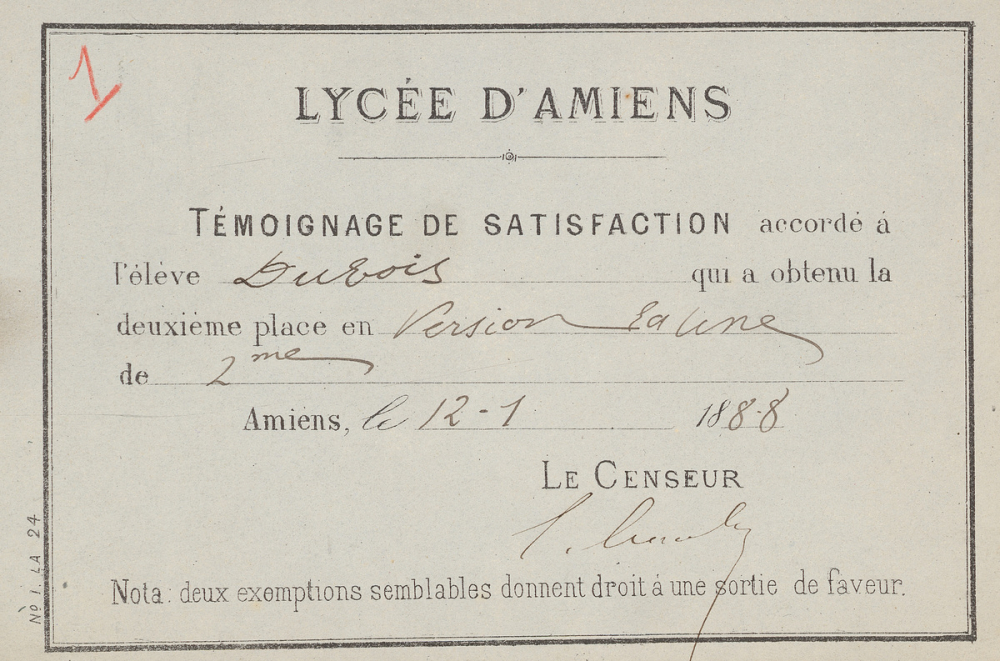 1
LYCÉE D'AMIENS
TÉMOIGNAGE DE SATISFACTION accordé à
l'élève Dubois qui a obtenu la
deuxième place en Version Latine
de 2me
Amiens, le 12-1 1888
LE CENSEUR
Nota: deux exemptions semblables donnent droit à une sortie de faveur.
No 1. LA 24